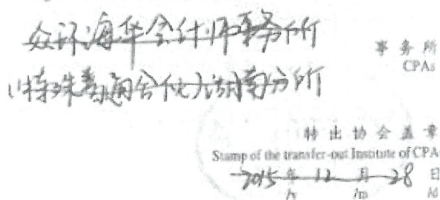 众环海华会计师事务所
事务所
CPAs
(特殊普通合伙)湖南分所
转出协会盖章
Stamp of the transfer-out Institute of CPA
2015 年 12 月 28 日
/y /m /d